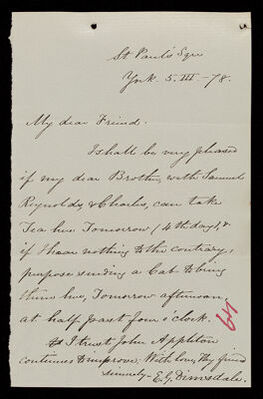 St Paul's Sqre
York. 5. III. - 78.
My dear Friend.
I shall be very pleased
if my dear Brother, with Samuel
Reynolds, & Charles, can take
Tea here Tomorrow, (4th day), &
if I hear nothing to the contrary,
purpose sending a Cab to bring
them here, Tomorrow afternoon,
at half past four o'clock.
I trust John Appleton
continues to improve. With love, thy friend
sincerely - E. J. Dimsdale.